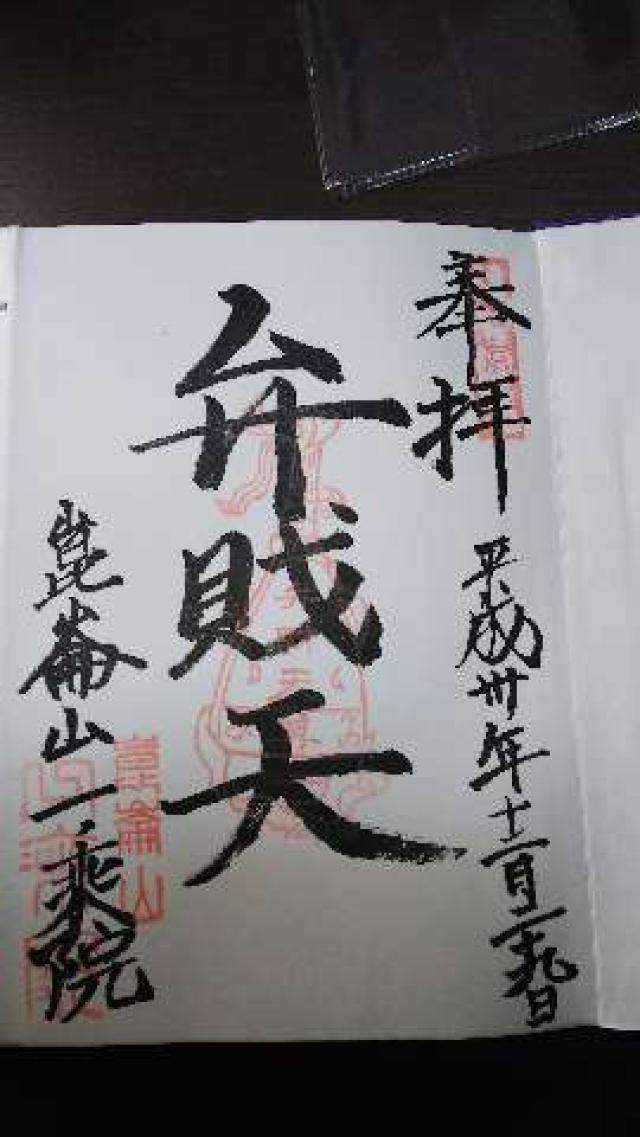 奉拝
平成卅年十二月二十九日
弁戝天
崑崙山一乗院
崑崙山